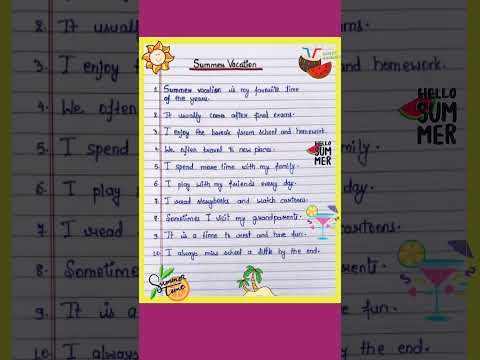 Summer Vacation
1. Summer vacation is my favourite time
of the year.
2. It usually come after final exams.
3. I enjoy the break from school and homework.
4. We often travel to new places.
5. I spend more time with my family.
6. I play with my friends every day.
7. I read storybooks and watch cartoons.
8. Sometimes I visit my grandparents.
9. It is a time to rest and have fun.
10. I always miss school a little by the end.
HELLO
SUM
MER
Summer
Time
2. It usually
3. I enjoy homework.
4. We often
5. I spend
6. I play day.
7. I read cartoons.
8. Sometimes
9. It is a fun.
10. I always the end.
HELLO
SUM
MER